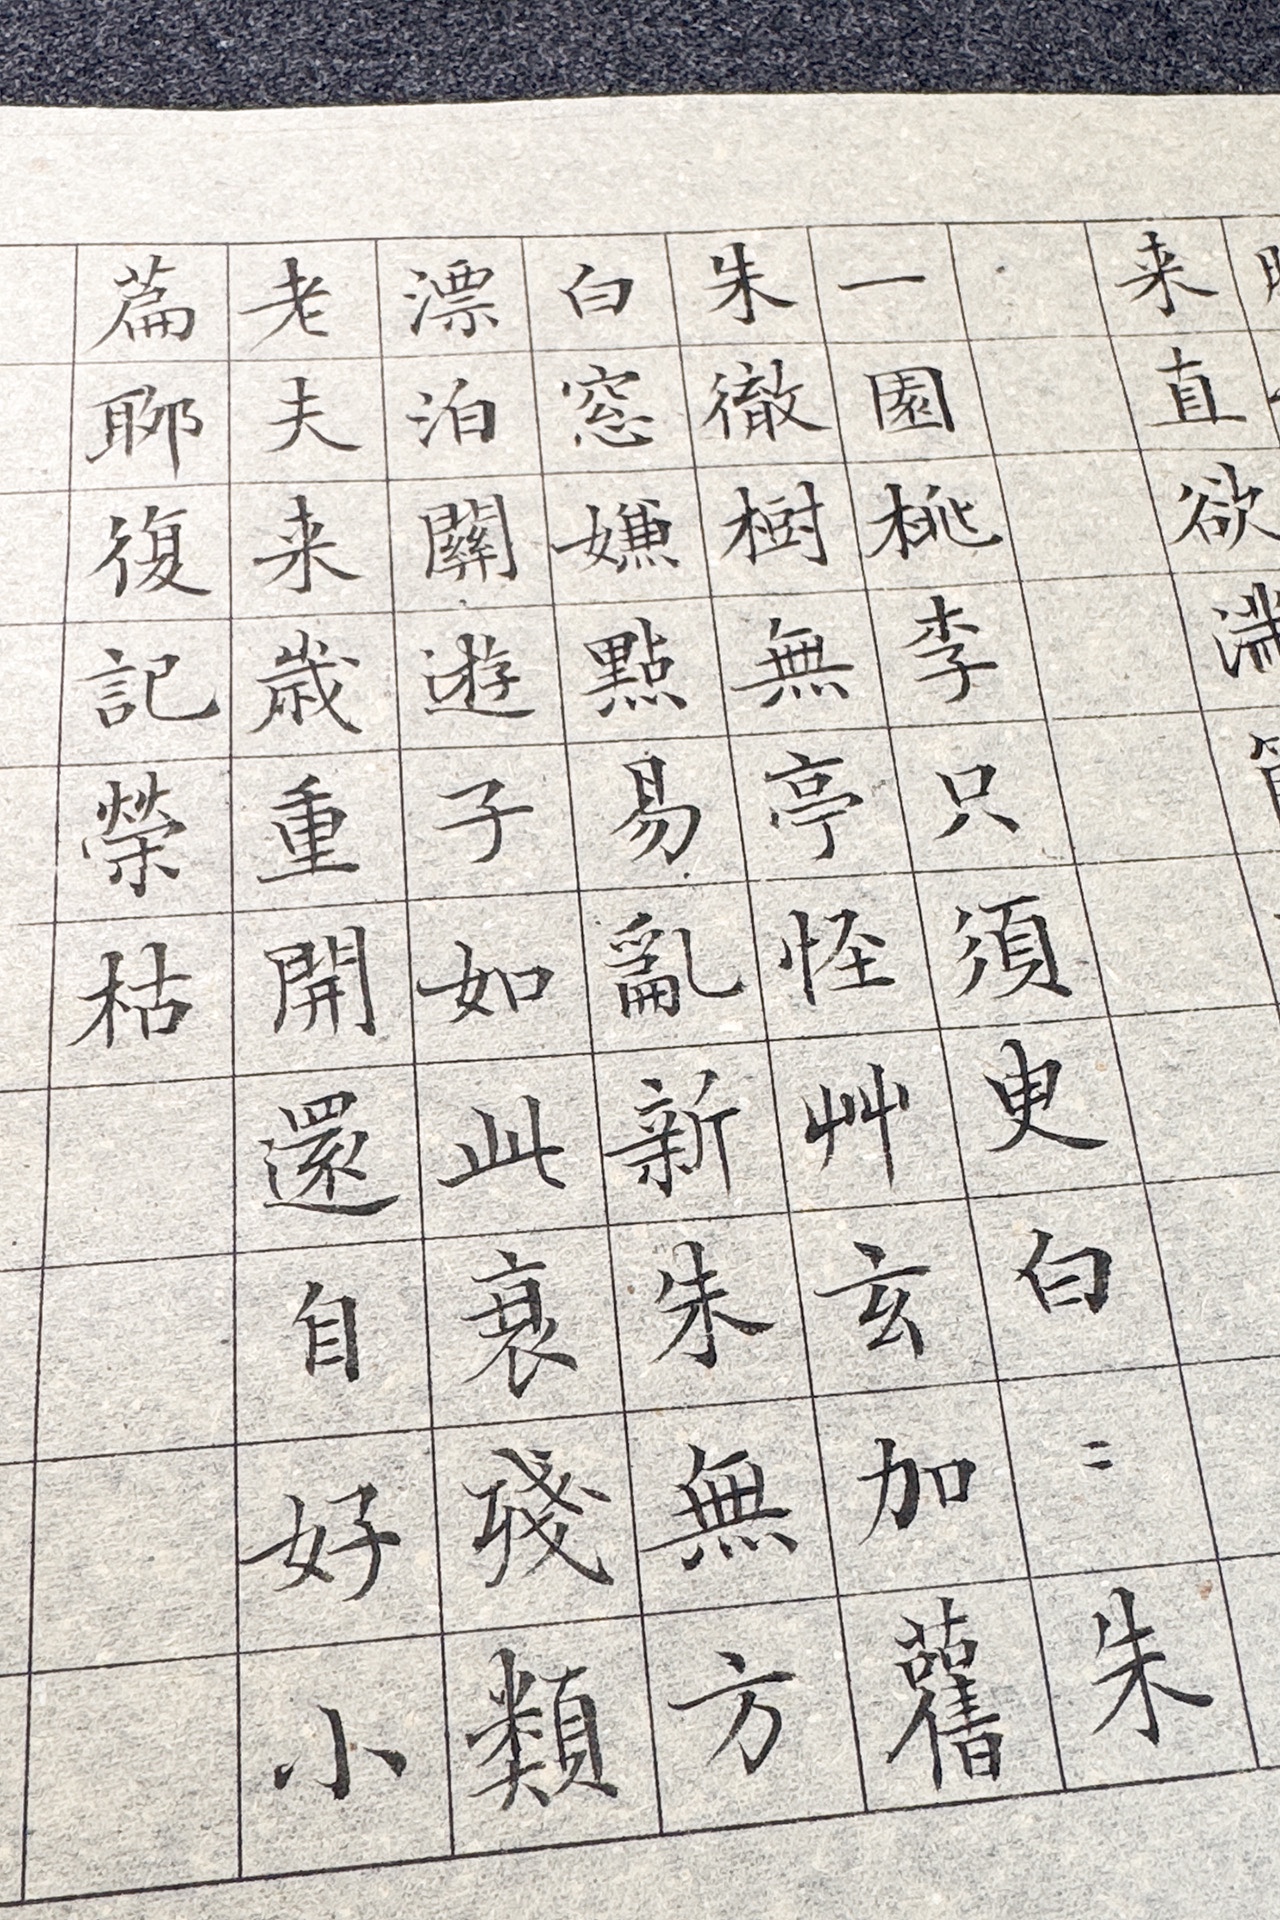 来直欲滿
一園桃李只須臾白〻朱
朱徹樹無亭怪艸玄加舊
白窓嫌點易亂新朱無方
漂泊關遊子如此衰殘類
老夫来歲重開還自好小
篇聊復記榮枯